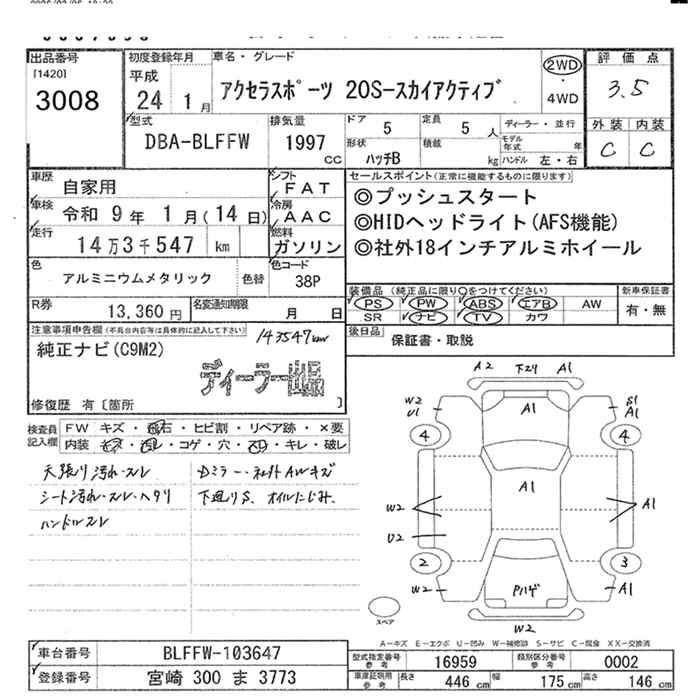 出品番号
[1420]
3008
初度登録年月
平成
24 1月
車名・グレード
アクセラスポーツ 20S-スカイアクティブ
2WD
・
4WD
評価点
3.5
外装 内装
C C
型式
DBA-BLFFW
排気量
1997
CC
ドア 5
定員 5 人
形状 ハッチB
積載 kg
ディーラー・並行
モデル年式 年
ハンドル 左・右
車歴 自家用
車検 令和 9年 1月(14日)
走行 14万3千547 km
シフト
FAT
冷房
AAC
燃料
ガソリン
セールスポイント(正常に機能するものに限ります)
◎プッシュスタート
◎HIDヘッドライト(AFS機能)
◎社外18インチアルミホイール
色 アルミニウムメタリック 色替
色コード
38P
装備品(純正品に限り○をつけてください)
PS PW ABS エアB AW
SR ナビ TV カワ
新車保証書
有・無
R券 13,360円
名変通知期限 月 日
後日品
保証書・取説
注意事項申告欄(不具合内容等は具体的に記入して下さい)
143547km
純正ナビ(C9M2)
ディーラー出品
修復歴 有〔箇所 〕
検査員記入欄
FW キズ・飛石・ヒビ割・リペア跡・×要
内装 キズ・汚レ・コゲ・穴・スリ・キレ・破レ
天張り汚れ・スレ
シート汚れ・スレ・ヘタリ
ハンドルスレ
Dミラー・社外AWキズ
下廻りS、オイルにじみ.
A2 下スリ A1
W2
U1
A1
S1
A1
4 4
A1
W2
A1
U2
2 3
Pハゲ
W2
A1
W2
スペア
A-キズ E-エクボ U-凹み W-補修跡 S-サビ C-腐食 XX-交換済
車台番号 BLFFW-103647
登録番号 宮崎 300 ま 3773
型式指定番号
参考
16959
類別区分番号
参考
0002
車庫証明用
参考
長さ 446 cm 幅 175 cm 高さ 146 cm